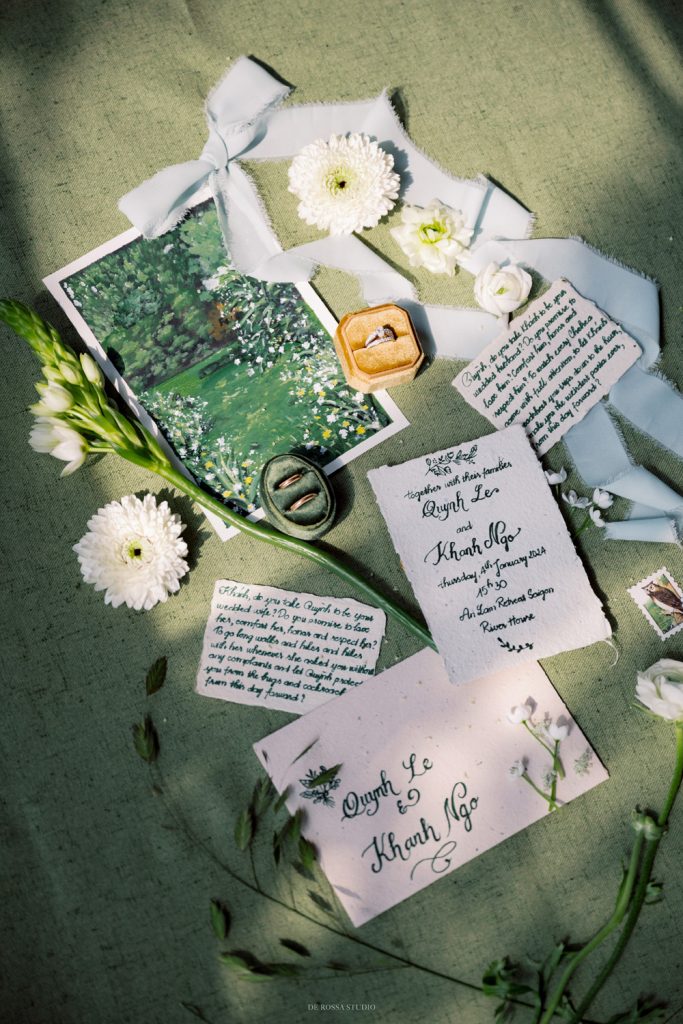 Quỳnh, do you take Khanh to be your
wedded husband? Do you promise to
love him, comfort him, honor and
respect him?
together with their families
Quỳnh Le
and
Khanh Ngo
Thursday, 4th January 2024
15h30
An Lam Retreat Saigon
River House
Khanh, do you take Quỳnh to be your
wedded wife? Do you promise to love
her, comfort her, honor and respect her?
To go long walks and hikes and hikes
with her whenever she asked you without
any complaints and let Quỳnh protect
you from the bugs and cockroach
from this day forward?
Quỳnh Le
&
Khanh Ngo
DE ROSSA STUDIO